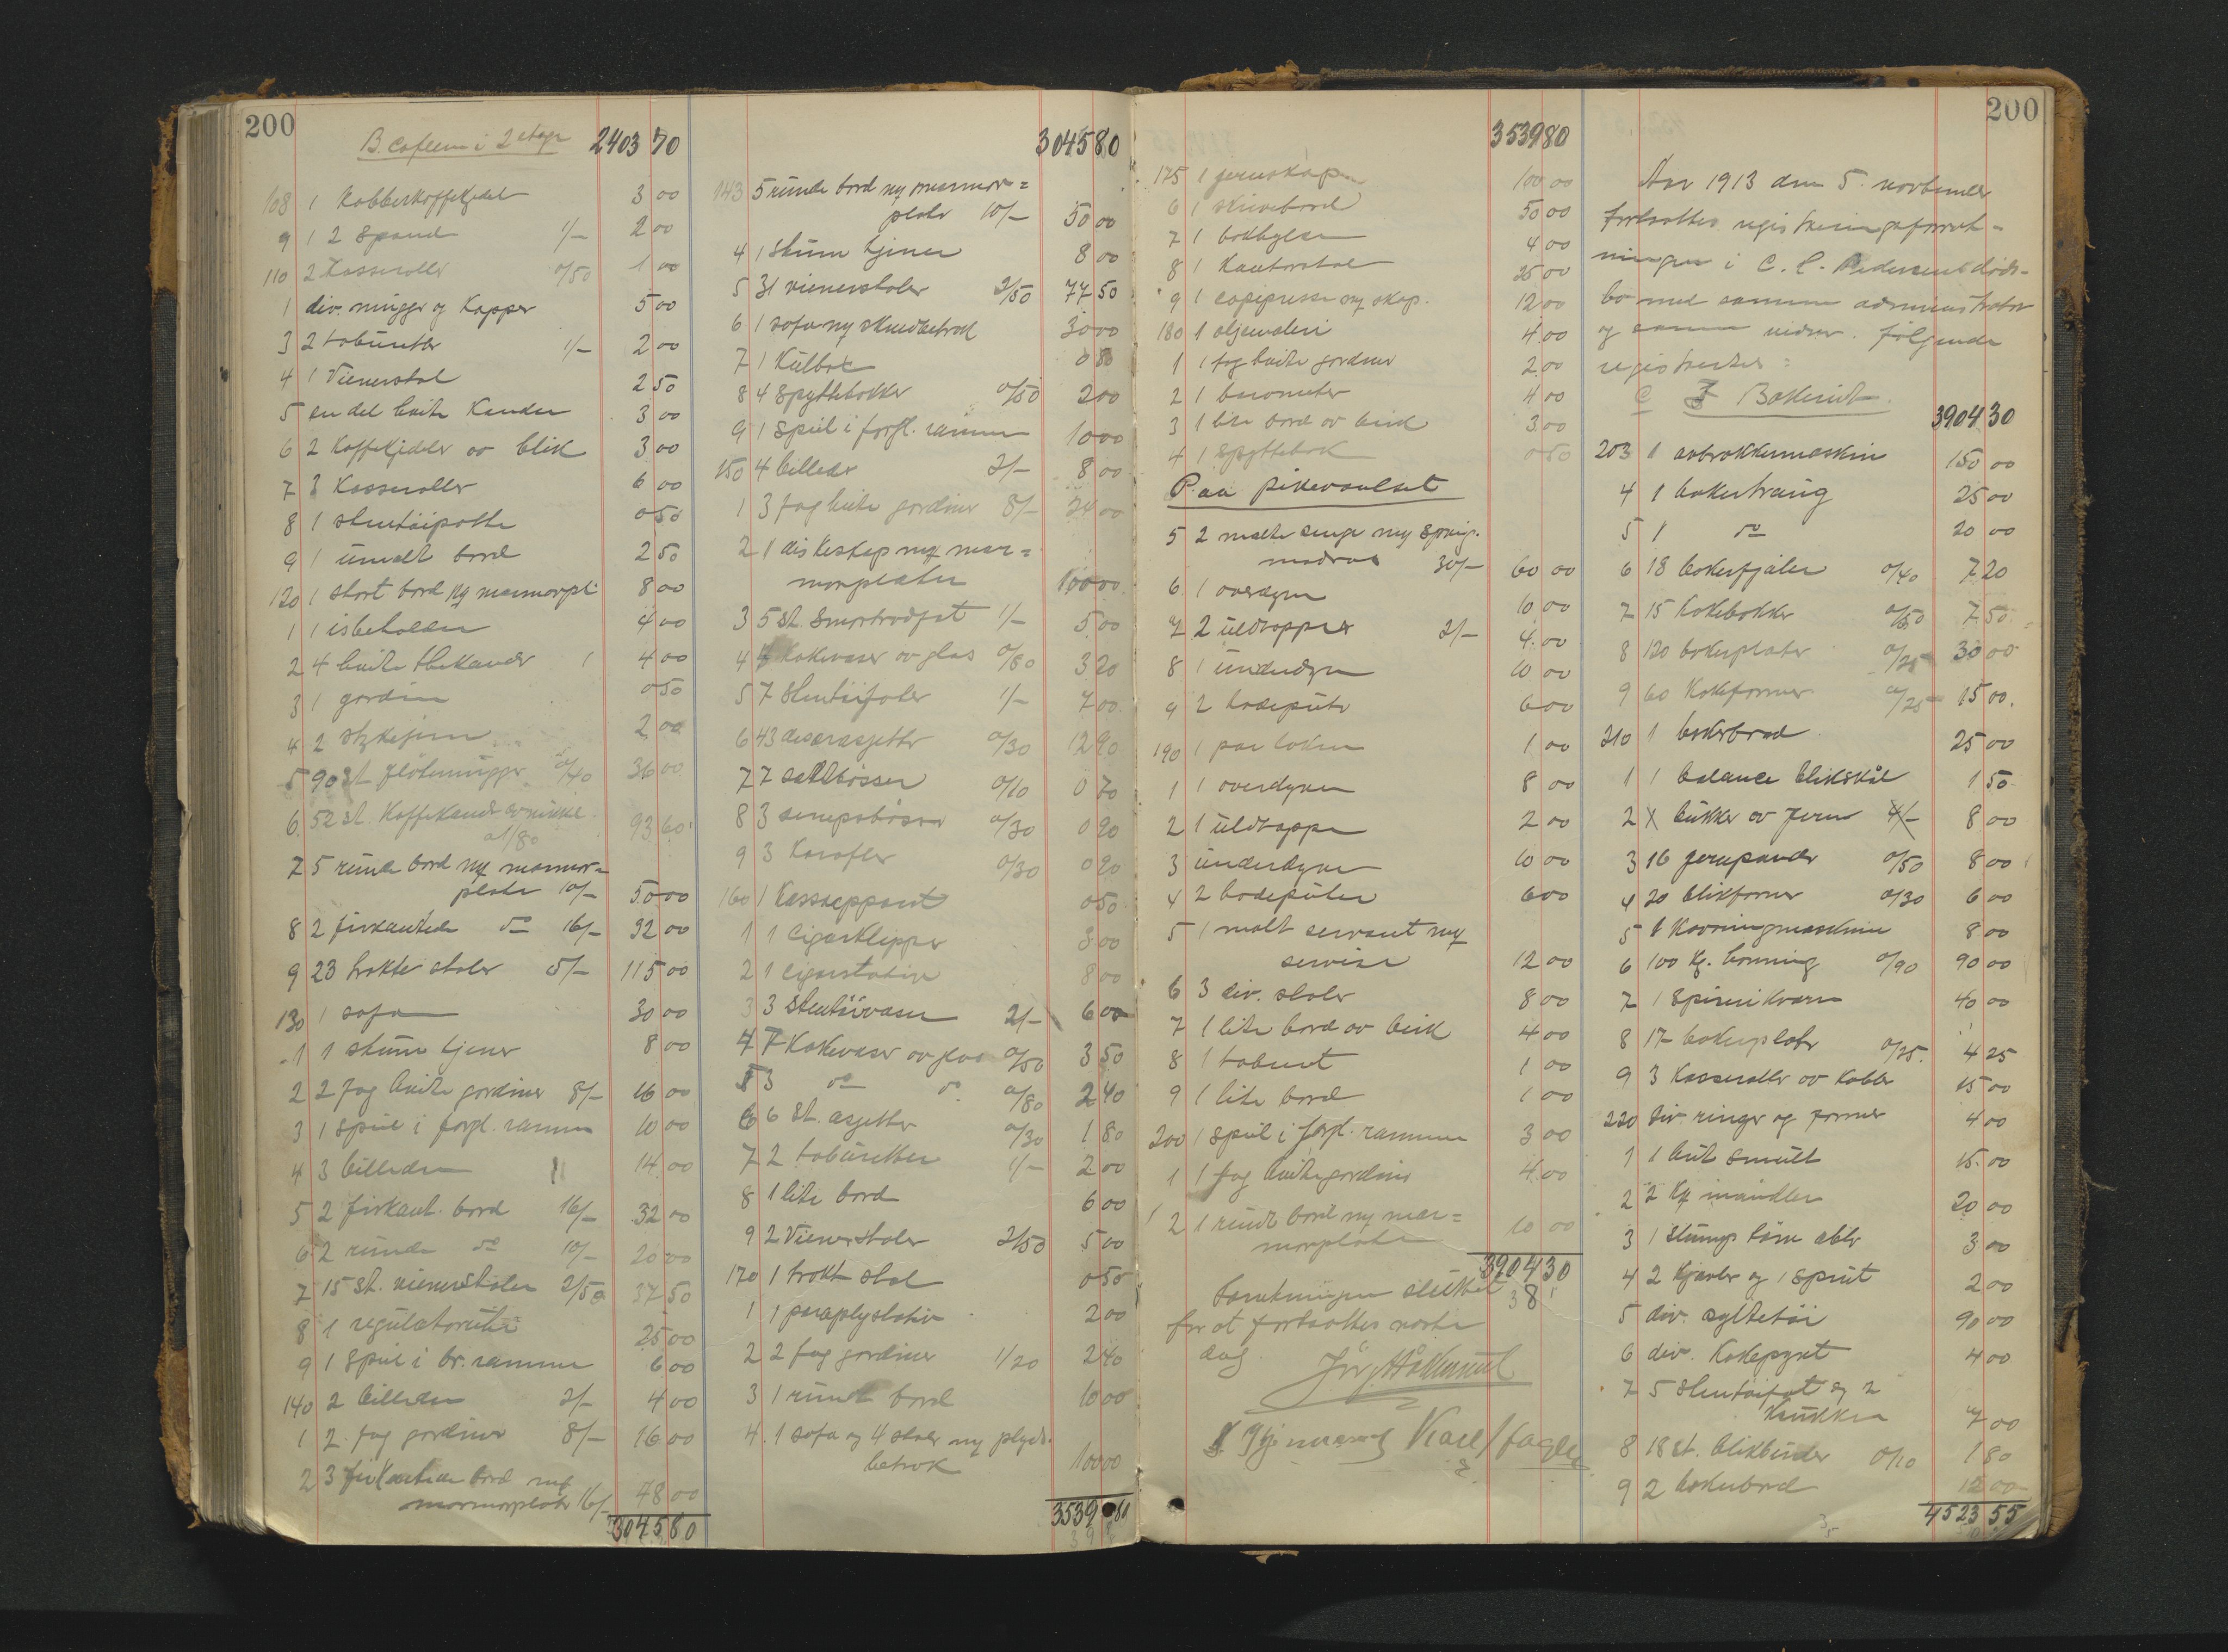 200
B. Cafeen i 2 etage 2403 70
108 1 Kobberkaffekjedel 3 00
9 1 2 Spand 1/- 2 00
110 2 Kasseroller 0/50 1 00
1 div. mugger og Kopper 5 00
3 2 tabüretter 1/- 2 00
4 1 Vienerstol 2 50
5 en del hvite Kander 3 00
6 2 Kaffekjedeler av blik 3 00
7 3 Kasseroller 6 00
8 1 stentöipotte 0 50
9 1 ümalt bord 2 50
120 1 stort bord mg marmorpl. 8 00
1 1 isbeholder 4 00
2 4 hvite thekander 1 4 00
3 1 gardin 0 50
4 2 strykejern 2 00
5 90 st. flötemügger 0/40 36 00
6 52 st. Kaffekander av nikkel
a 1/80 93 60
7 5 runde bord mg marmor=
plate 10/- 50 00
8 2 firkantede do 16/- 32 00
9 23 trukte stoler 5/- 115 00
130 1 sofa 30 00
1 1 stum tjener 8 00
2 2 fag hvite gardiner 8/- 16 00
3 1 speil i forgl. ramme 10 00
4 3 billeder 14 00
5 2 firkant. bord 16/- 32 00
6 2 runde do 10/- 20 00
7 15 st. vienerstoler 2/50 37 50
8 1 regülatorühr 25 00
9 1 speil i br. ramme 6 00
140 2 billeder 2/- 4 00
1 2 fag gardiner 8/- 16 00
2 3 firkantede bord mg
marmorplate 16/- 48 00
3045 80
3045 80
143 5 runde bord mg marmor=
plate 10/- 50 00
4 1 stüm tjener 8 00
5 31 vienerstoler 2/50 77 50
6 1 sofa mg skindbetræk 30 00
7 1 Külbox 0 80
8 4 Spyttebakker 0/50 2 00
9 1 Speil i forgl. ramme 10 00
150 4 billeder 2/- 8 00
1 3 fag hvite gardiner 8/- 24 00
2 1 diskeskap mg mar=
morplater 100 00
3 5 st. Smørbrødfat 1/- 5 00
4 4 Kakevaser av glas 0/80 3 20
5 7 Stentöifater 1/- 7 00
6 43 desertasjetter 0/30 12 90
7 7 saltbösser 0/10 0 70
8 3 senepsbösser 0/30 0 90
9 3 Karafler 0/30 0 90
160 1 Kassaapparat 0 50
1 1 Cigarklipper 3 00
2 1 cigarstativ 8 00
3 3 Stentöivaser 2/- 6 00
4 7 Kakevaser av glas 0/50 3 50
5 3 do do 0/80 2 40
6 6 st. asjetter 0/30 1 80
7 2 tabüretter 1/- 2 00
8 1 lite bord 6 00
9 2 Vienerstoler 2/50 5 00
170 1 trukt stol 0 50
1 1 paraplystativ 2 00
2 2 fag gardiner 1/20 2 40
3 1 rundt bord 10 00
4 1 sofa og 4 stoler mg plyds.
betræk 100 00
3539 80
3539 80
175 1 jernskap 100 00
6 1 skrivebord 50 00
7 1 bokhylde 4 00
8 1 Kontorstol 25 00
9 1 copipresse mg skap. 12 00
180 1 oljemaleri 4 00
1 1 fag hvite gardiner 2 00
2 1 barometer 4 00
3 1 lite bord av birk 3 00
4 1 Spyttebak 0 50
Paa pikeværelset
5 2 malte senge mg spring.
madras 30/- 60 00
6 1 overdyne 10 00
7 2 üldtæpper 2/- 4 00
8 1 ünderdyne 10 00
9 2 hodepüter 6 00
190 1 par laken 1 00
1 1 overdyne 8 00
2 1 üldtæppe 2 00
3 ünderdyne 10 00
4 2 hodepüter 6 00
5 1 malt servant mg
servise 12 00
6 3 div. stoler 8 00
7 1 lite bord av birk 4 00
8 1 tabüret 1 00
9 1 lite bord 1 00
200 1 speil i forgl. ramme 3 00
1 1 fag hvite gardiner 4 00
2 1 rundt bord mg mar=
morplate 10 00
3904 30
Forretningen sluttet
for at fortsættes næste
dag.
200
Aar 1913 den 5. november
fortsattes registreringsforret=
ningen i C. C. Pedersens döds=
bo med samme administrator
og samme vidner. Følgende
registrertes:
C Bakeriet
3904 30
203 1 avbrækkermaskin 150 00
4 1 bakertraug 25 00
5 1 do 20 00
6 18 bakerfjæler 0/40 7 20
7 15 Kakebakker 0/50 7 50
8 120 bakerplater 0/25 30 00
9 60 Kakeformer 0/25 15 00
210 1 bakerbord 25 00
1 1 balance blikskål 1 50
2 bükker av jern 4/- 8 00
3 16 jernpander 0/50 8 00
4 20 blikformer 0/30 6 00
5 1 Kavringmaskine 8 00
6 100 kg. honning 0/90 90 00
7 1 Spineri Kværn 40 00
8 17 bakerplater 0/25 4 25
9 3 Kasseroller av Kobber 15 00
220 div. ringer og former 4 00
1 1 büt smült 15 00
2 2 kg mandler 20 00
3 1 slump törre æbler 3 00
4 2 kjævler og 1 sprøit 2 00
5 div. syltetöi 90 00
6 div. Kakepynt 4 00
7 5 stentöifat og 2
Krükker 7 00
8 18 st. blikbüxer 0/10 1 80
9 2 bakerbord 12 00
4523 55